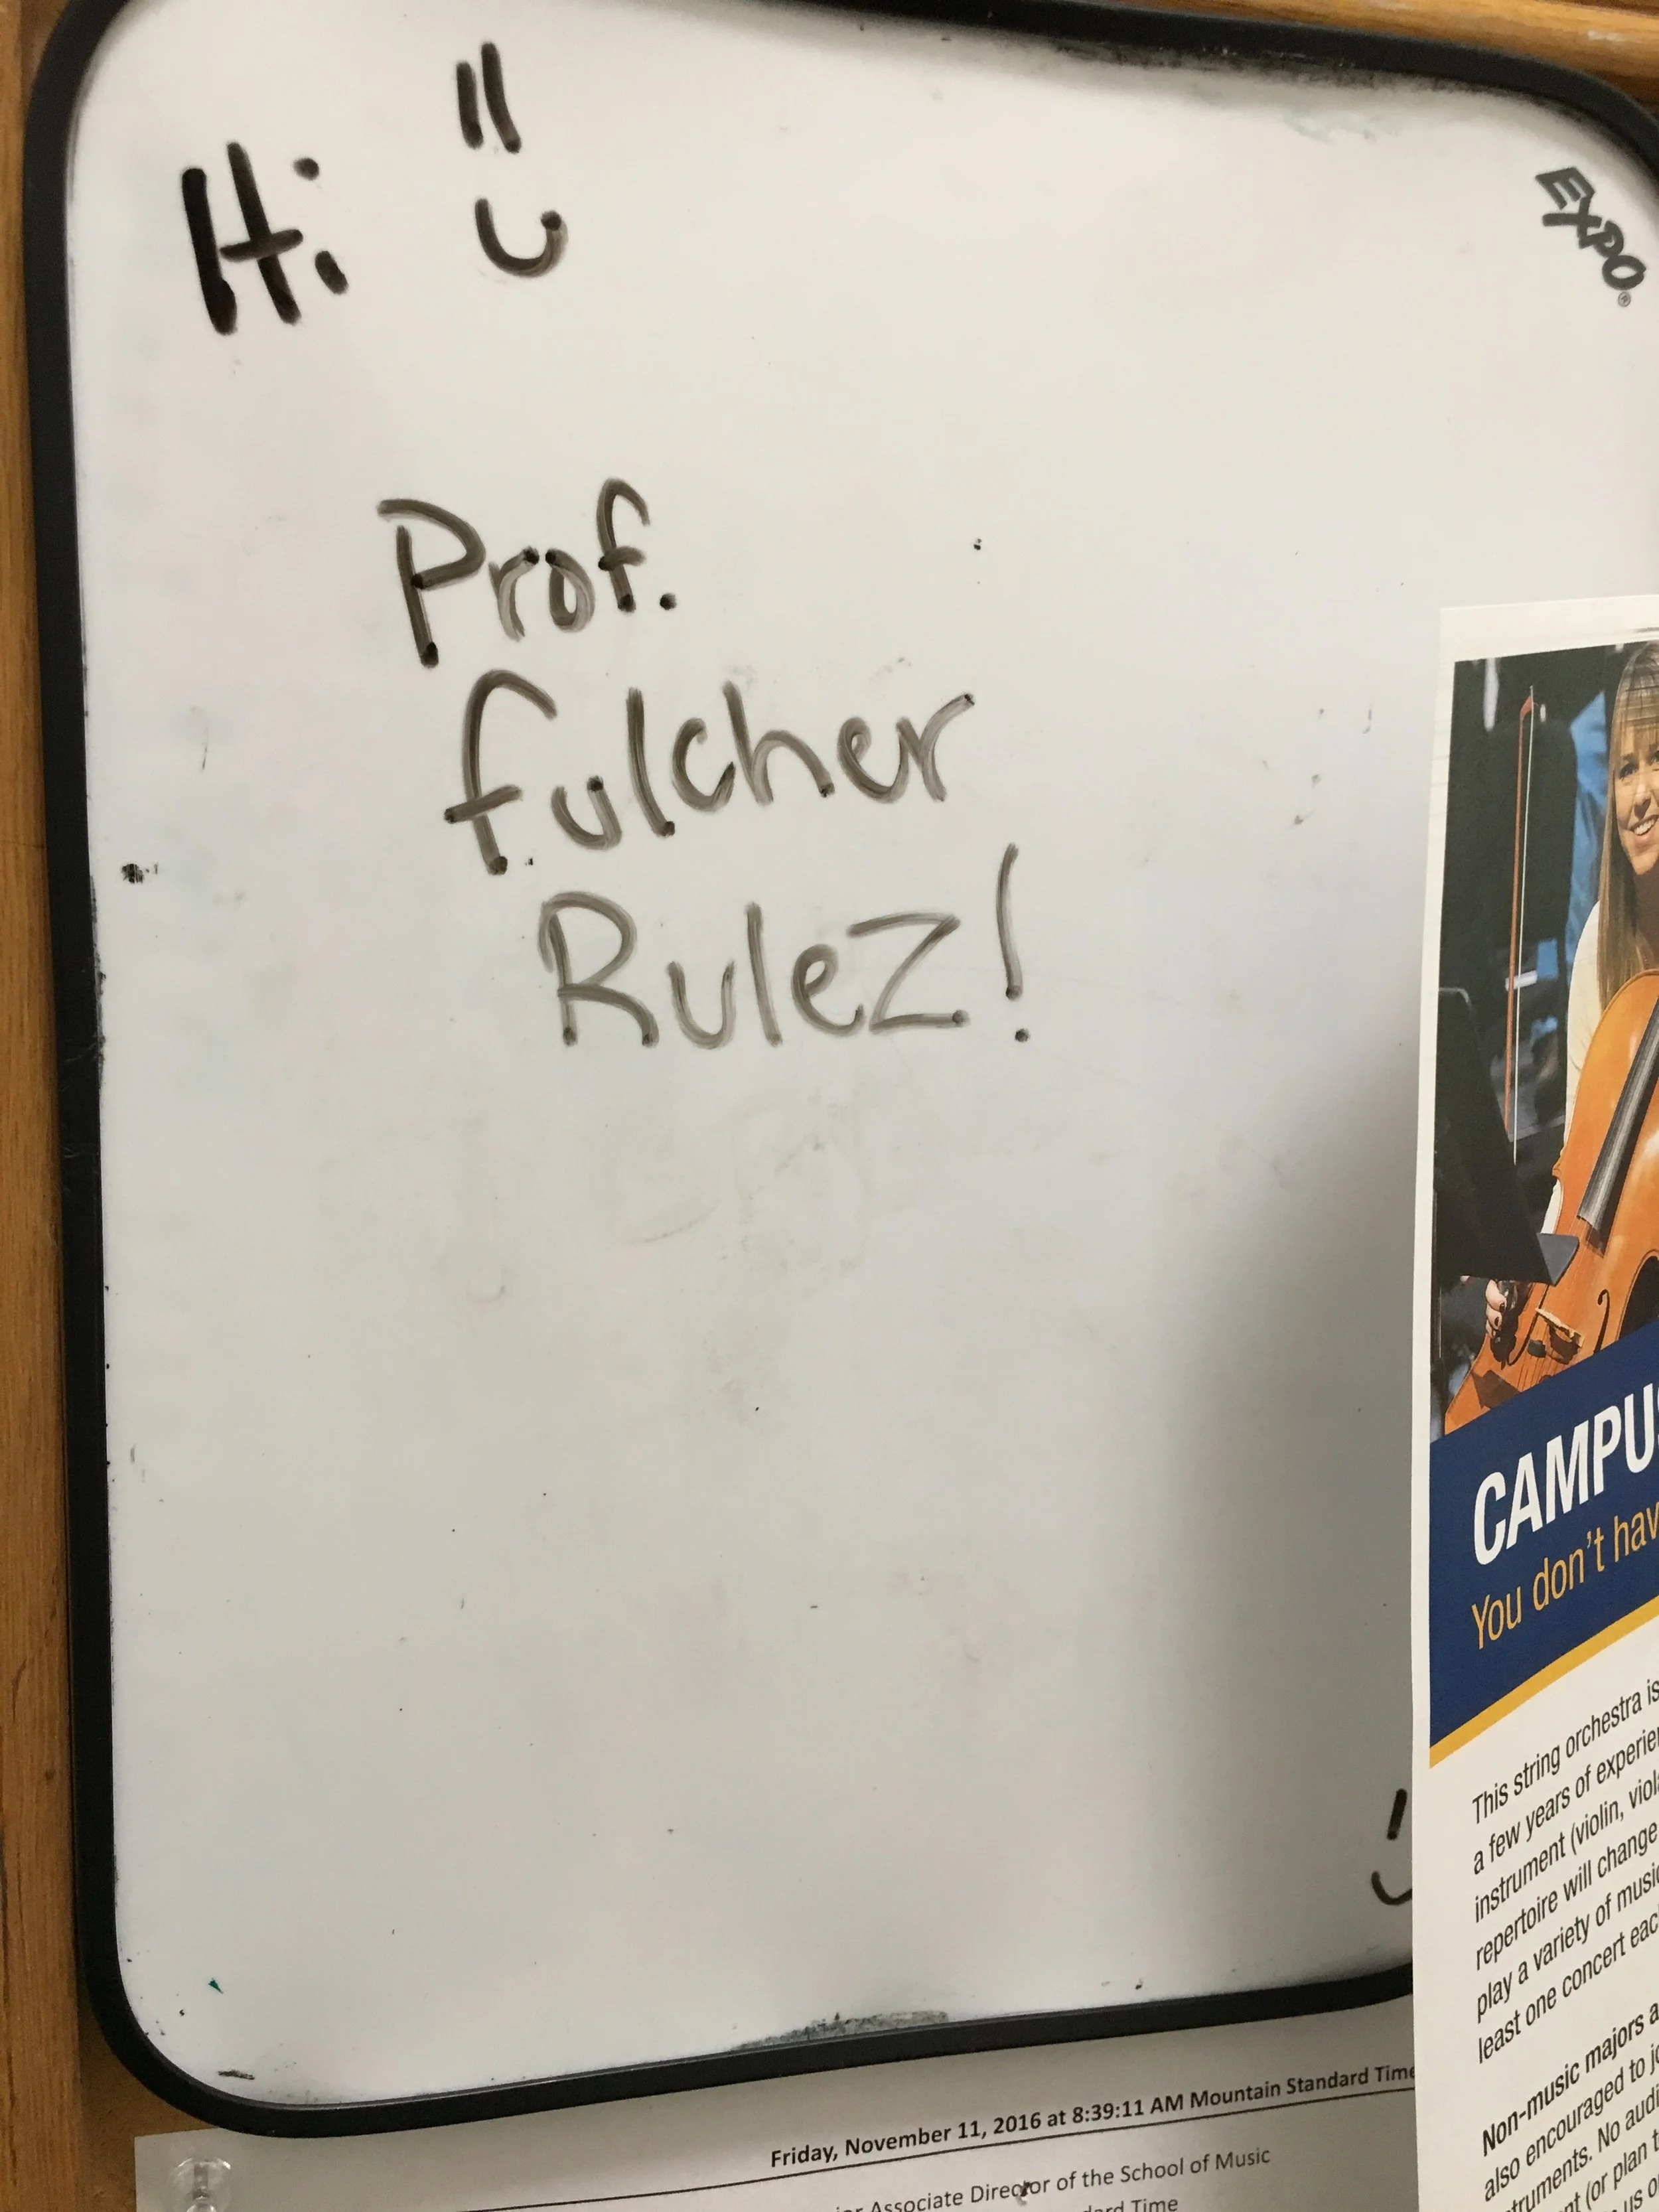 Hi
EXPO®
Prof.
fulcher
RuleZ!
CAMPUS
You don't hav
This string orchestra is
a few years of experie
instrument (violin, viol
repertoire will change
play a variety of music
least one concert eac
Non-music majors a
also encouraged to jo
truments. No audi
nt (or plan t
us o
Friday, November 11, 2016 at 8:39:11 AM Mountain Standard Time
Associate Director of the School of Music
dard Time